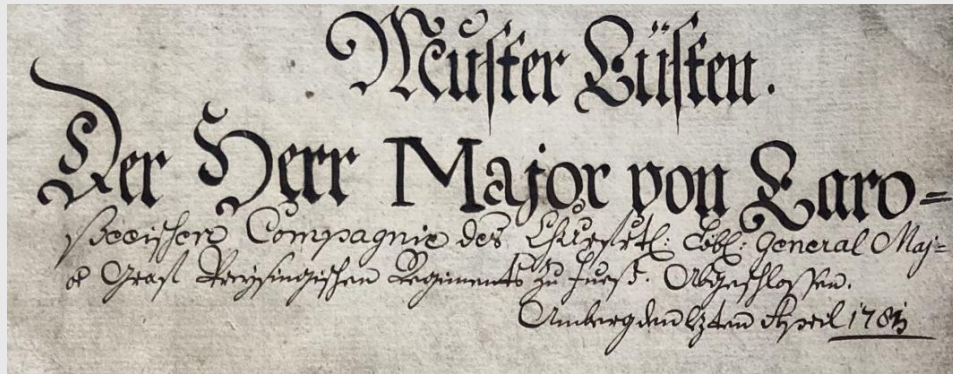 Muster Lüsten.
Der Herr Major von Laro=
Compagnie des Churfrtl: Löbl: General Maj=
or Graf Preysingischen Regiments zu Fueß. Abgeschlossen.
Amberg den April